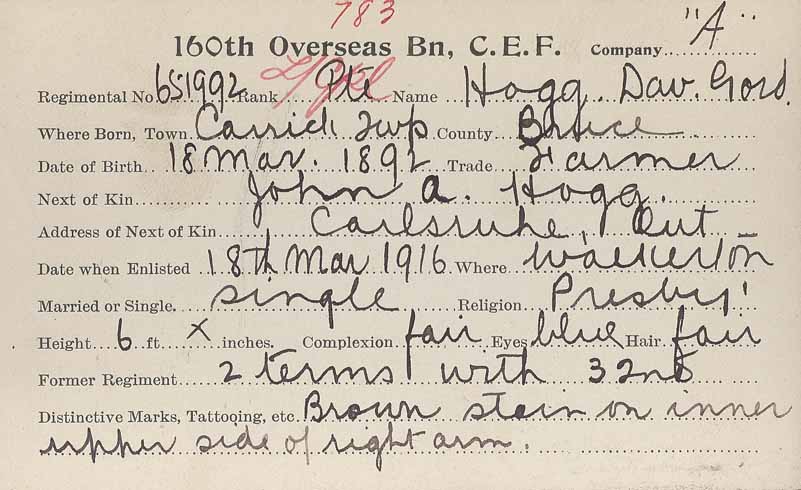 783
160th Overseas Bn, C.E.F. Company "A"
Regimental No 651992 Rank Pte Name Hogg. Dav. Gord.
Where Born, Town. Carrick Twp County Bruce
Date of Birth 18 Mar. 1892 Trade Farmer
Next of Kin John A. Hogg.
Address of Next of Kin Carlsruhe, Ont
Date when Enlisted 18th Mar 1916 Where Walkerton
Married or Single. single Religion Presby!
Height 6 ft x inches. Complexion fair Eyes blue Hair fair
Former Regiment 2 terms with 32nd
Distinctive Marks, Tattooing, etc. Brown stain on inner
upper side of right arm.